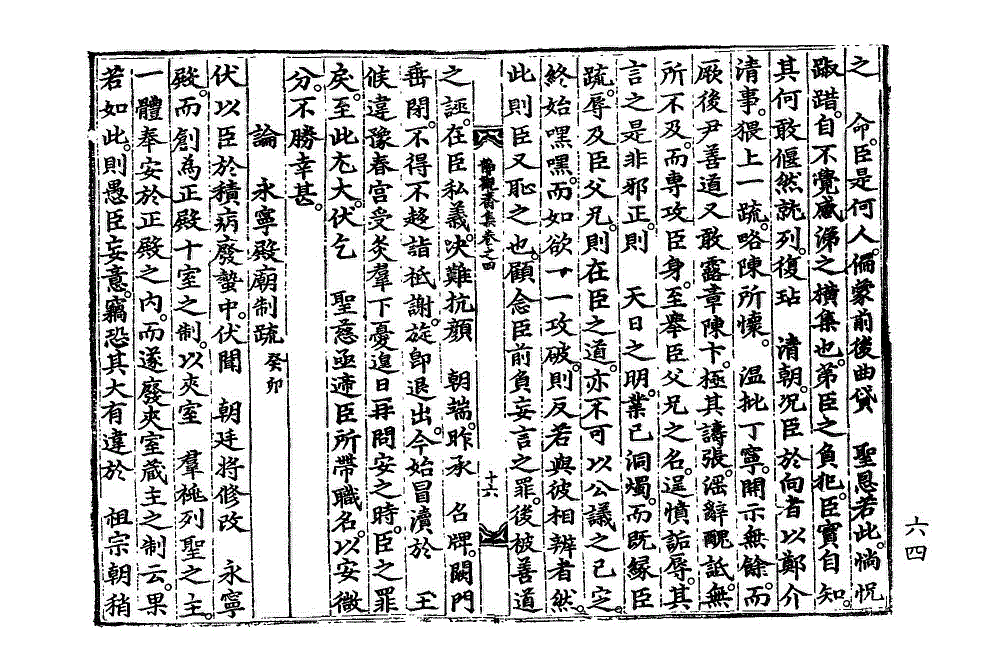 之　命。臣是何人。偏蒙前後曲貸　聖恩若此。惝怳
踧踖。自不覺感涕之橫集也。第臣之負犯。臣實自知。
其何敢偃然就列。復玷　淸朝。况臣於向者以鄭介
淸事。猥上一疏。略陳所懷。　温批丁寧。開示無餘。而
厥後尹善道又敢露章陳卞。極其譸張。淫辭醜詆。無
所不及。而專攻臣身。至擧臣父兄之名。逞憤詬辱。其
言之是非邪正。則　天日之明。業已洞燭。而旣緣臣
疏。辱及臣父兄。則在臣之道。亦不可以公議之已定。
終始嘿嘿。而如欲一一攻破。則反若與彼相辨者然。
此則臣又恥之也。顧念臣前負妄言之罪。後被善道
之誣。在臣私義。决難抗顔　朝端。昨承　名牌。闕門
垂閉。不得不趍詣祗謝。旋卽退出。今始冒瀆於　王
候違豫。春宮受灸。羣下憂遑。日再問安之時。臣之罪
戾。至此尤大。伏乞　聖慈亟遞臣所帶職名。以安微
分。不勝幸甚。
論　永寧殿廟制疏 癸卯
伏以臣於積病廢蟄中。伏聞　朝廷將修改　永寧
殿。而創爲正殿十室之制。以夾室　羣祧列聖之主。
一體奉安於正殿之內。而遂廢夾室藏主之制云。果
若如此。則愚臣妄意。竊恐其大有違於　祖宗朝稍
靜觀齋集卷之四
十六
六四